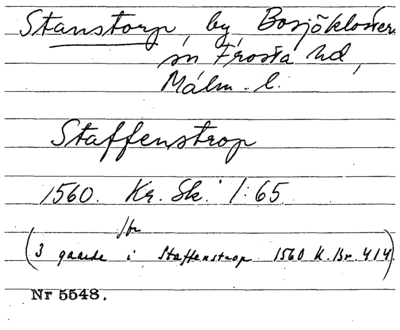 Stanstorp, by, Bosjökloster
sn Frosta hd,
Malm. l.
Staffenstrop
1560. Kr. Sk. 1:65
(3 gaarde i Staffenstrop 1560 K. Br. 414)
Nr 5548.